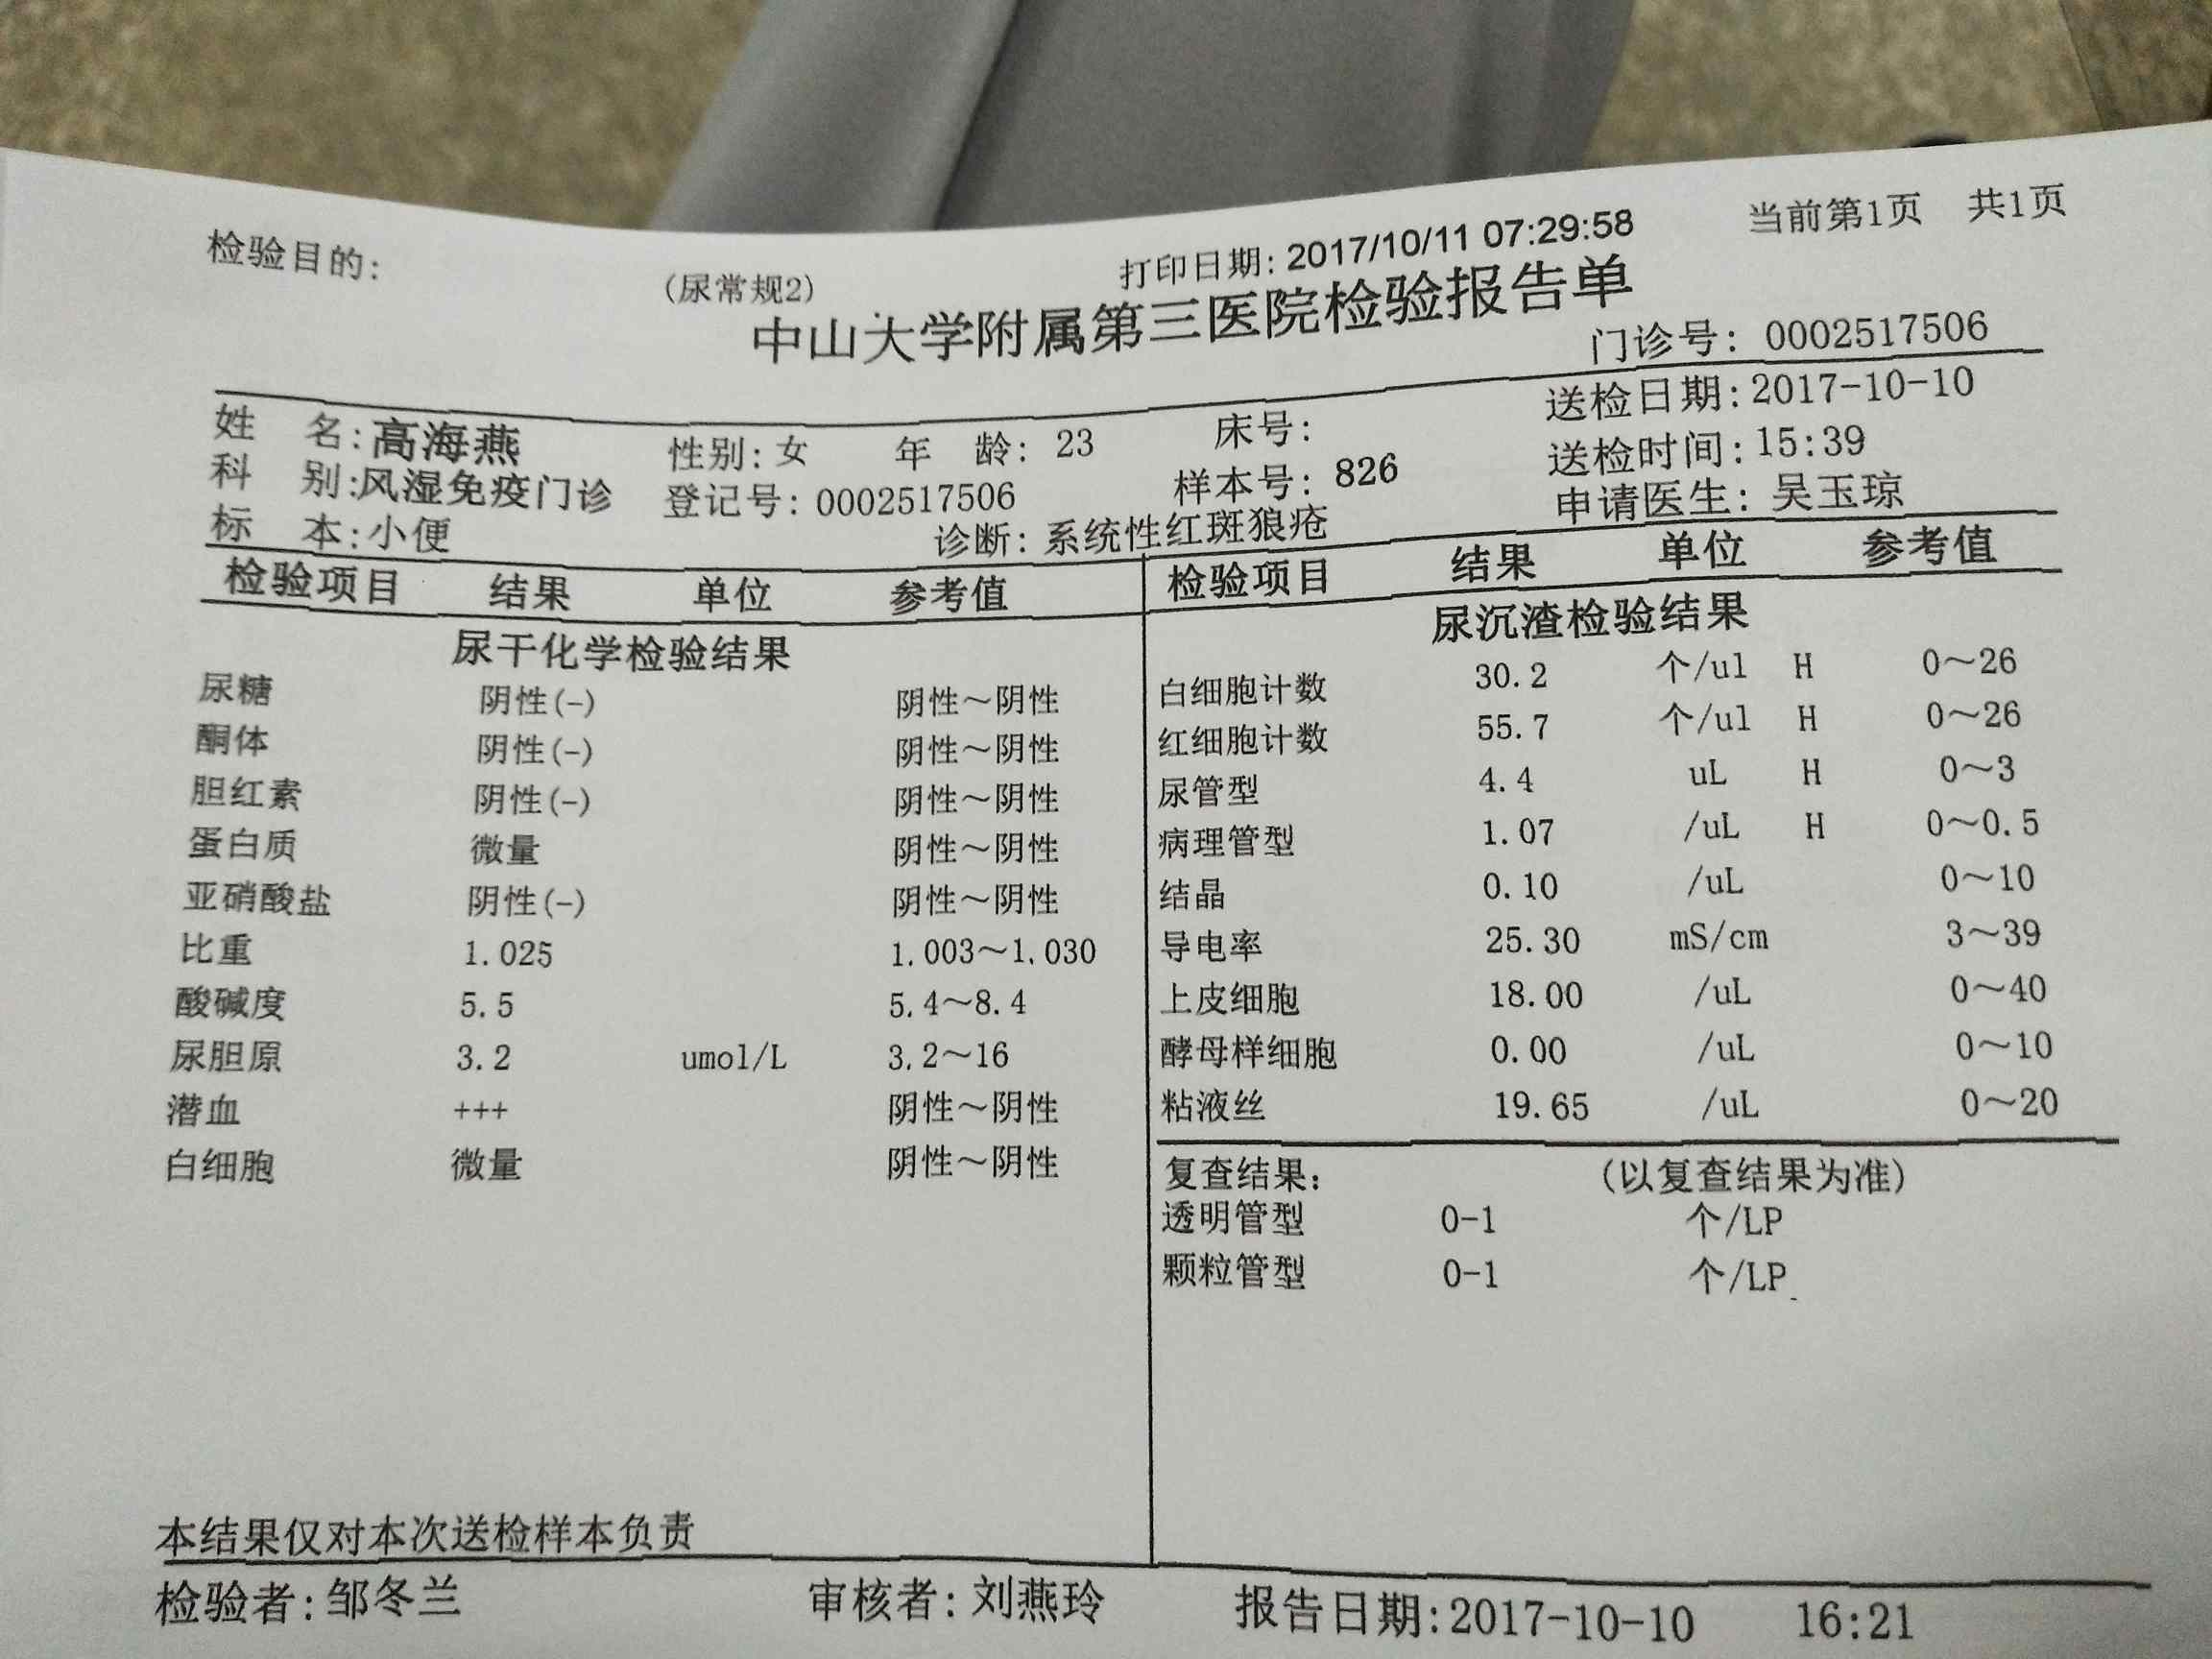 当前第1页 共1页
打印日期: 2017/10/11 07:29:58
检验目的: (尿常规2)
中山大学附属第三医院检验报告单
门诊号: 0002517506
姓 名: 高海燕 性别: 女 年 龄: 23 床号: 送检日期: 2017-10-10
科 别: 风湿免疫门诊 登记号: 0002517506 样本号: 826 送检时间: 15:39
标 本: 小便 诊断: 系统性红斑狼疮 申请医生: 吴玉琼
检验项目 结果 单位 参考值 检验项目 结果 单位 参考值
尿干化学检验结果
尿糖 阴性(-) 阴性~阴性
酮体 阴性(-) 阴性~阴性
胆红素 阴性(-) 阴性~阴性
蛋白质 微量 阴性~阴性
亚硝酸盐 阴性(-) 阴性~阴性
比重 1.025 1.003~1.030
酸碱度 5.5 5.4~8.4
尿胆原 3.2 umol/L 3.2~16
潜血 +++ 阴性~阴性
白细胞 微量 阴性~阴性
尿沉渣检验结果
白细胞计数 30.2 个/ul H 0~26
红细胞计数 55.7 个/ul H 0~26
尿管型 4.4 uL H 0~3
病理管型 1.07 /uL H 0~0.5
结晶 0.10 /uL 0~10
导电率 25.30 mS/cm 3~39
上皮细胞 18.00 /uL 0~40
酵母样细胞 0.00 /uL 0~10
粘液丝 19.65 /uL 0~20
复查结果: (以复查结果为准)
透明管型 0-1 个/LP
颗粒管型 0-1 个/LP
本结果仅对本次送检样本负责
检验者: 邹冬兰 审核者: 刘燕玲 报告日期: 2017-10-10 16:21